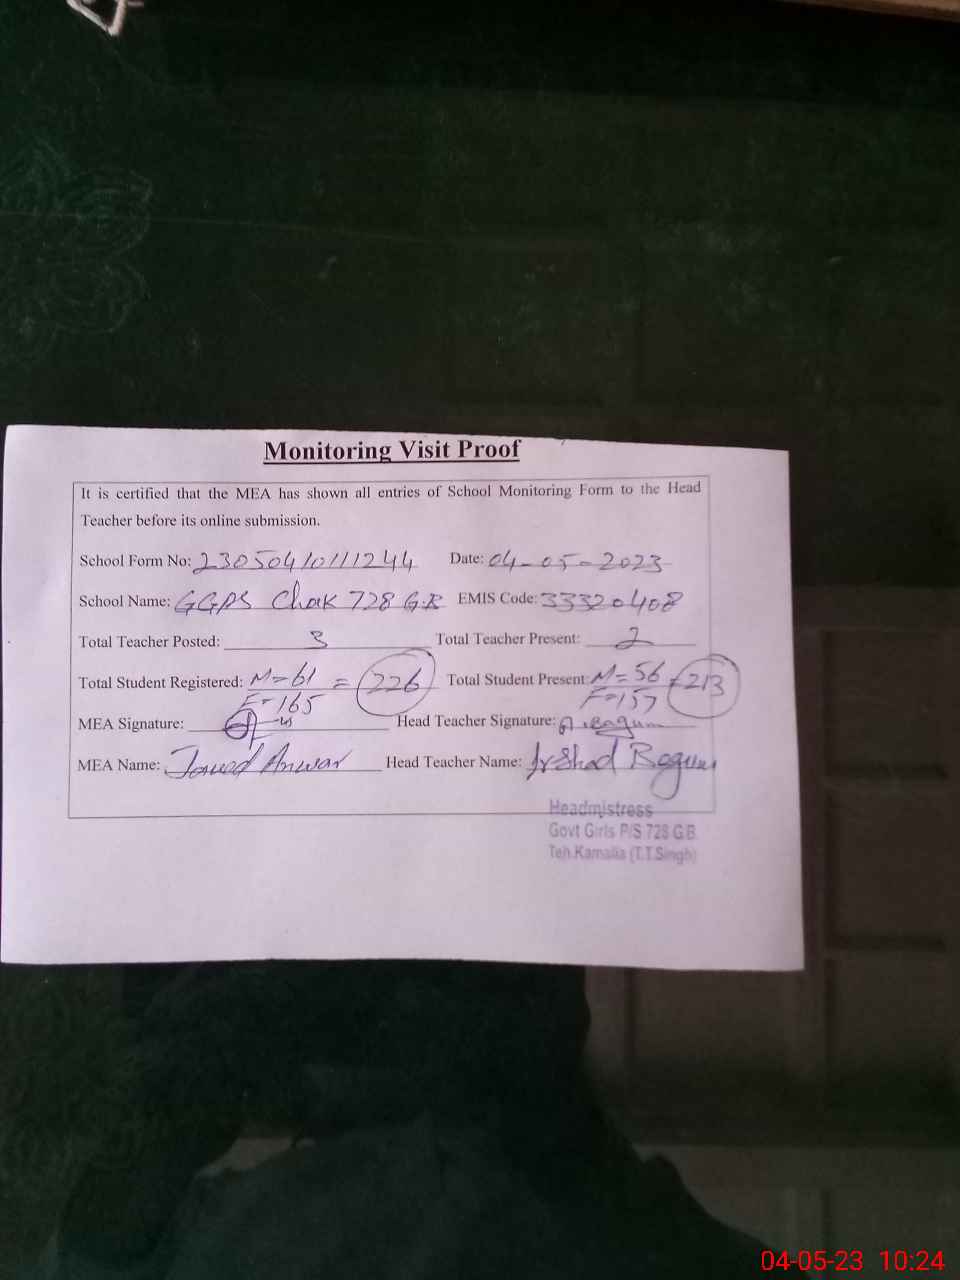 Monitoring Visit Proof
It is certified that the MEA has shown all entries of School Monitoring Form to the Head
Teacher before its online submission.
School Form No: 23050410111244 Date: 04-05-2023
School Name: GGPS Chak 728 G.B EMIS Code: 33320408
Total Teacher Posted: 3 Total Teacher Present: 2
Total Student Registered: M=61 = 226 Total Student Present: M=56 =213
F=165 F=157
MEA Signature: Head Teacher Signature:
MEA Name: Javed Anwar Head Teacher Name: Irshad Begum
Headmistress
Govt Girls P/S 728 G.B.
Teh.Kamalia (T.T.Singh)
04-05-23 10:24